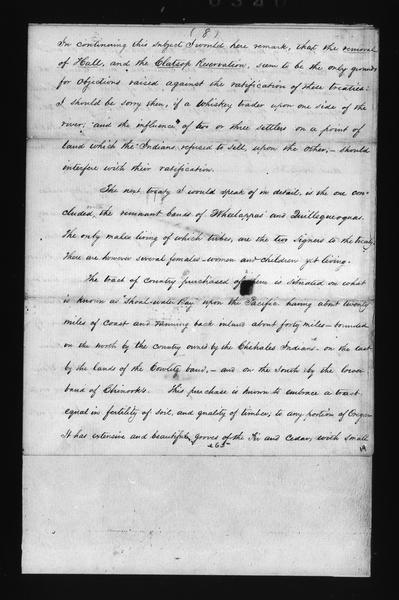 (8)
In continuing this subject I would here remark, that the removal
of Hall, and the Clatsop Reservation, seem to be the only grounds
for objections raised against the ratification of these treaties:
I should be sorry then, if a whiskey trader upon one side of the
river; and the influence of two or three settlers on a point of
land which the Indians refused to sell, upon the other, - should
interfere with their ratification.
The next treaty I would speak of in detail, is the one con-
cluded, the remnant bands of Wheelappas and Quillequeoquas.
The only males living of which tribes, are the two signers to the treaty,
There are however several females - women and children yet living.
The tract of country purchased of them is situated on what
is known as "Shoal-water Bay" upon the Pacific having about twenty
miles of coast and running back inland about forty miles - bounded
on the north by the country owned by the Chehales Indians - on the East
by the lands of the Cowlitz band, - and on the South by the lower
band of Chinook's. This purchase is known to embrace a tract
equal in fertility of soil, and quality of timber, to any portion of Oregon
It has extensive and beautiful groves of the Fir and Cedar, with small
265